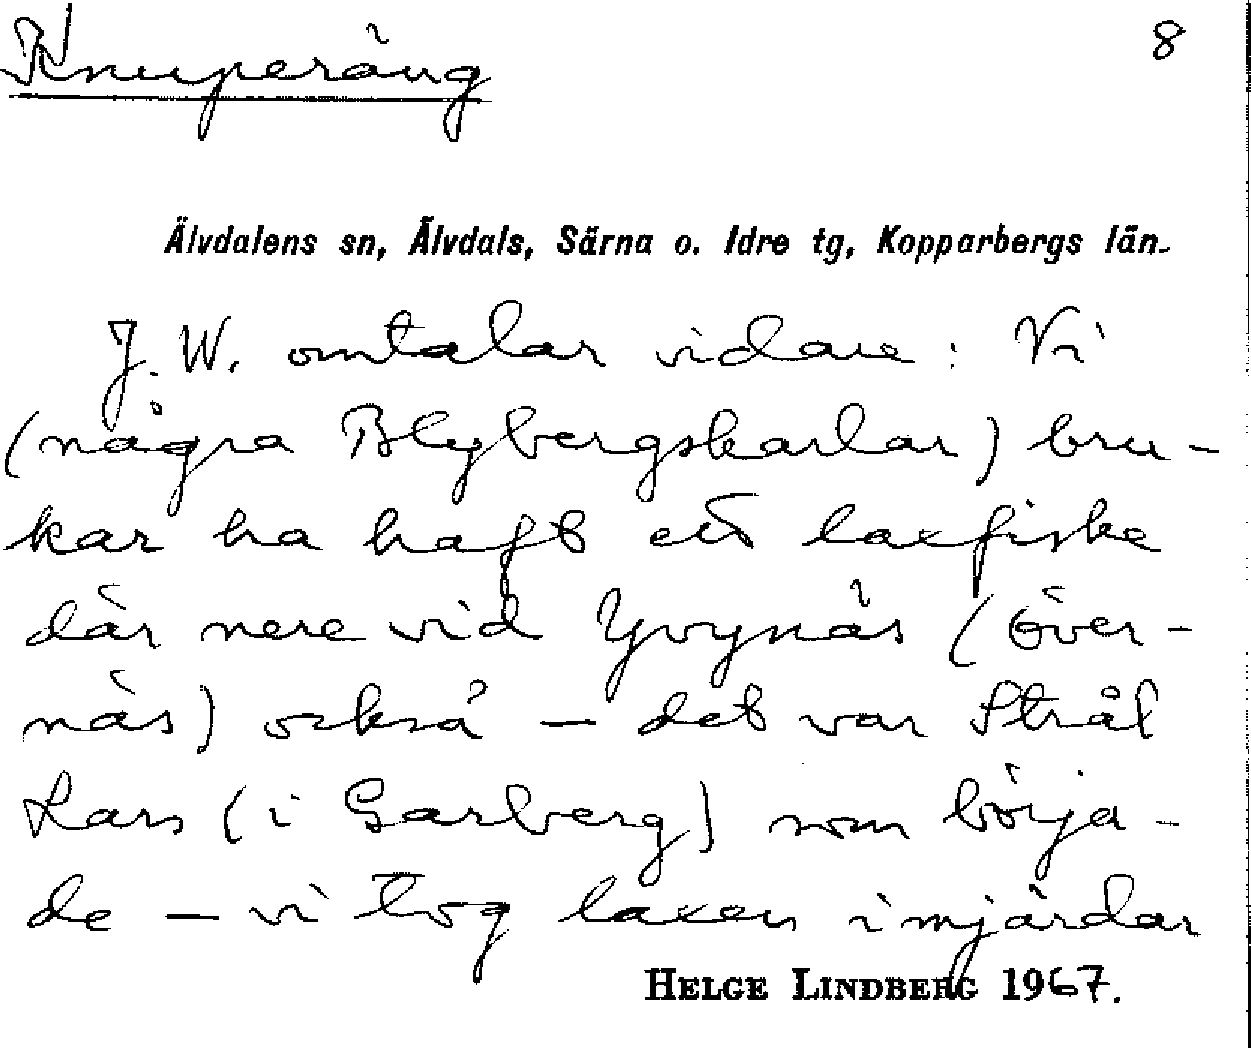 Knuperäng 8
Älvdalens sn, Älvdals, Särna o. Idre tg, Kopparbergs län.
J. W. omtalar vidare: Vi
(några Blybergskarlar) bru-
kar ha haft ett laxfiske
där nere vid Yvynäs (Över-
näs) också – det var Strål
Lars (i Garberg) som börja-
de – vi tog laxen i mjärdar
HELGE LINDBERG 1967.